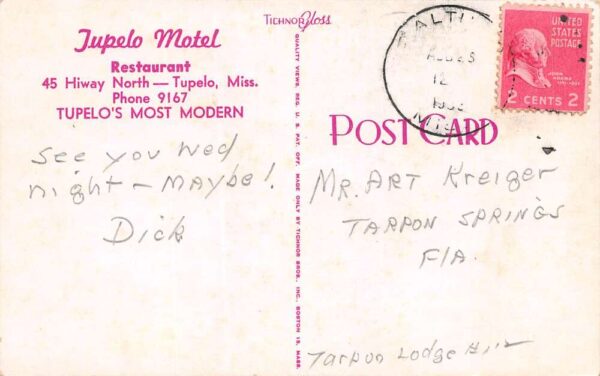 Tupelo Motel
Restaurant
45 Hiway North — Tupelo, Miss.
Phone 9167
TUPELO'S MOST MODERN
See you Wed
night - Maybe!
Dick
TICHNOR Gloss
QUALITY VIEWS, REG. U. S. PAT. OFF. MADE ONLY BY TICHNOR BROS., INC., BOSTON 15, MASS.
BALTI
AUG
12
MISS
UNITED
STATES
POSTAGE
JOHN
ADAMS
2 CENTS 2
POST CARD
MR. ART Kreiger
TARPON SPRINGS
FlA.
Tarpon Lodge